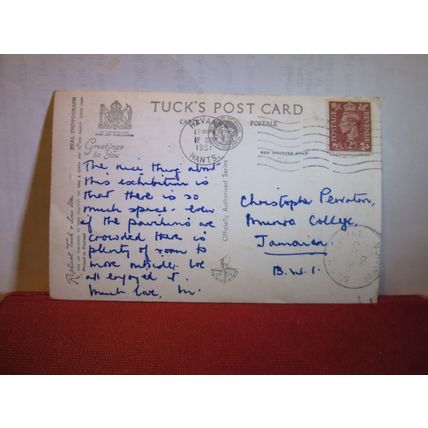 TUCK'S POST CARD
CARTE POSTALE
REAL PHOTOGRAPH
Greetings
to You
Raphael Tuck & Sons Ltd
HAVANT
1951
HANTS.
POSTAGE
REVENUE
2D
Officially Authorised Series
The nice thing about
this exhibition is
that there is so
much space. Even
if the pavilions are
crowded there is
plenty of room to
move outside. We
all enjoyed it.
Much love, M.
Christopher
Munro College,
Jamaica
B.W.I.